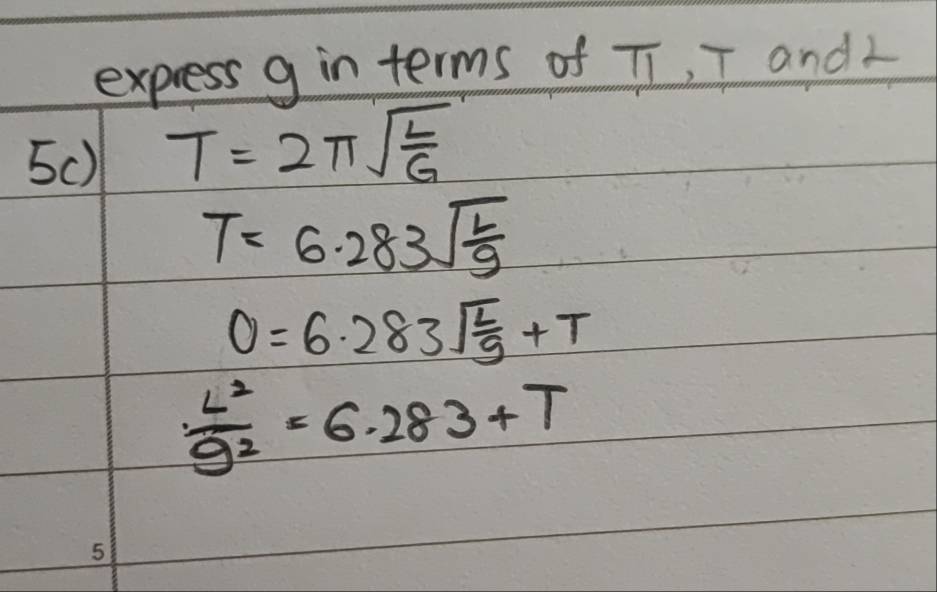 express g in terms of π, T and L
5c) T = 2π√(L/G)
T = 6.283√(L/g)
0 = 6.283√(L/g) + T
L²/g² = 6.283 + T
5